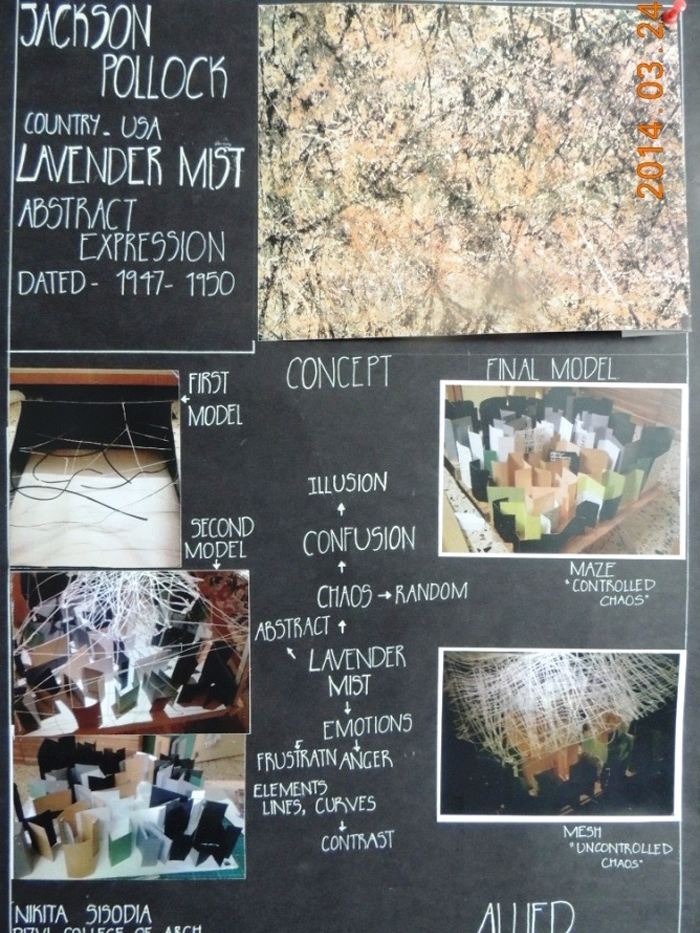 JACKSON
POLLOCK
COUNTRY- USA
LAVENDER MIST
ABSTRACT
EXPRESSION
DATED- 1947- 1950
2014.03.24
FIRST
MODEL
CONCEPT
FINAL MODEL
SECOND
MODEL
ILLUSION
CONFUSION
CHAOS → RANDOM
ABSTRACT
LAVENDER
MIST
EMOTIONS
FRUSTRATN ANGER
ELEMENTS
LINES, CURVES
CONTRAST
MAZE
"CONTROLLED
CHAOS"
MESH
"UNCONTROLLED
CHAOS"
NIKITA SISODIA
RIZVI COLLEGE OF ARCH
ALLIED